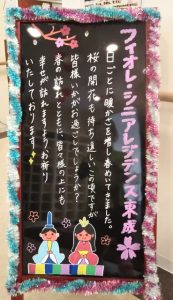 フィオレ・シニアレジデンス東成
日ごとに暖かさを増し春めいてきました。
桜の開花も待ち遠しいこの頃ですが
皆様いかがお過ごしでしょうか？
春の訪れとともに、皆々様の上にも
幸せが訪れますようお祈り
いたしております。